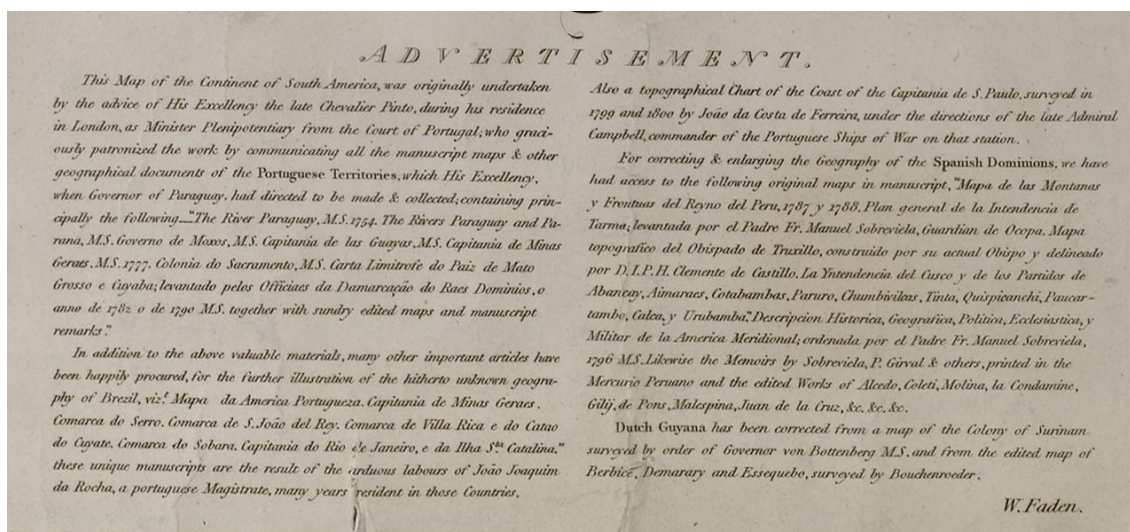 ADVERTISEMENT.
This Map of the Continent of South America, was originally undertaken
by the advice of His Excellency the late Chevalier Pinto, during his residence
in London, as Minister Plenipotentiary from the Court of Portugal; who graci-
ously patronized the work by communicating all the manuscript maps & other
geographical documents of the Portuguese Territories, which His Excellency,
when Governor of Paraguay, had directed to be made & collected; containing prin-
cipally the following_"The River Paraguay, M.S. 1754. The Rivers Paraguay and Pa-
rana, M.S. Governo de Moxos, M.S. Capitania de las Guayas, M.S. Capitania de Minas
Geraes, M.S. 1777. Colonia do Sacramento, M.S. Carta Limitrofe do Paiz de Mato
Grosso e Cuyaba; levantado pelos Officiaes da Damarcação do Raes Dominios, o
anno de 1782 o de 1790 M.S. together with sundry edited maps and manuscript
remarks."
In addition to the above valuable materials, many other important articles have
been happily procured, for the further illustration of the hitherto unknown geogra-
phy of Brezil, viz.t Mapa da America Portugueza. Capitania de Minas Geraes.
Comarca do Serro. Comarca de S. João del Rey. Comarca de Villa Rica e do Catao
do Cuyate. Comarca do Sobara. Capitania do Rio de Janeiro, e da Ilha S.ta Catalina."
these unique manuscripts are the result of the arduous labours of João Joaquim
da Rocha, a portuguese Magistrate, many years resident in those Countries.
Also a topographical Chart of the Coast of the Capitania de S. Paulo, surveyed in
1799 and 1800 by João da Costa de Ferreira, under the directions of the late Admiral
Campbell, commander of the Portuguese Ships of War on that station.
For correcting & enlarging the Geography of the Spanish Dominions, we have
had access to the following original maps in manuscript, "Mapa de las Montanas
y Frontuas del Reyno del Peru, 1787 y 1788. Plan general de la Intendencia de
Tarma; levantada por el Padre Fr. Manuel Sobreviela, Guardian de Ocopa. Mapa
topografico del Obispado de Truxillo, construido por su actual Obispo y delineado
por D. I. P. H. Clemente de Castillo. La Yntendencia del Cusco y de los Partidos de
Abancay, Aimaraes, Cotabambas, Paruro, Chumbivilcas, Tinta, Quispicanchi, Paucar-
tambo, Calca, y Urubamba." Descripcion Historica, Geografica, Politica, Ecclesiastica, y
Militar de la America Meridional; ordenada por el Padre Fr. Manuel Sobreviela,
1796 M.S. Likewise the Memoirs by Sobreviela, P. Girval & others, printed in the
Mercurio Peruano and the edited Works of Alcedo, Coleti, Molina, la Condamine,
Gilij, de Pons, Malespina, Juan de la Cruz, &c. &c. &c.
Dutch Guyana has been corrected from a map of the Colony of Surinam
surveyed by order of Governor von Bottenberg M.S. and from the edited map of
Berbice, Demarary and Essequebo, surveyed by Bouchenroeder.
W. Faden.